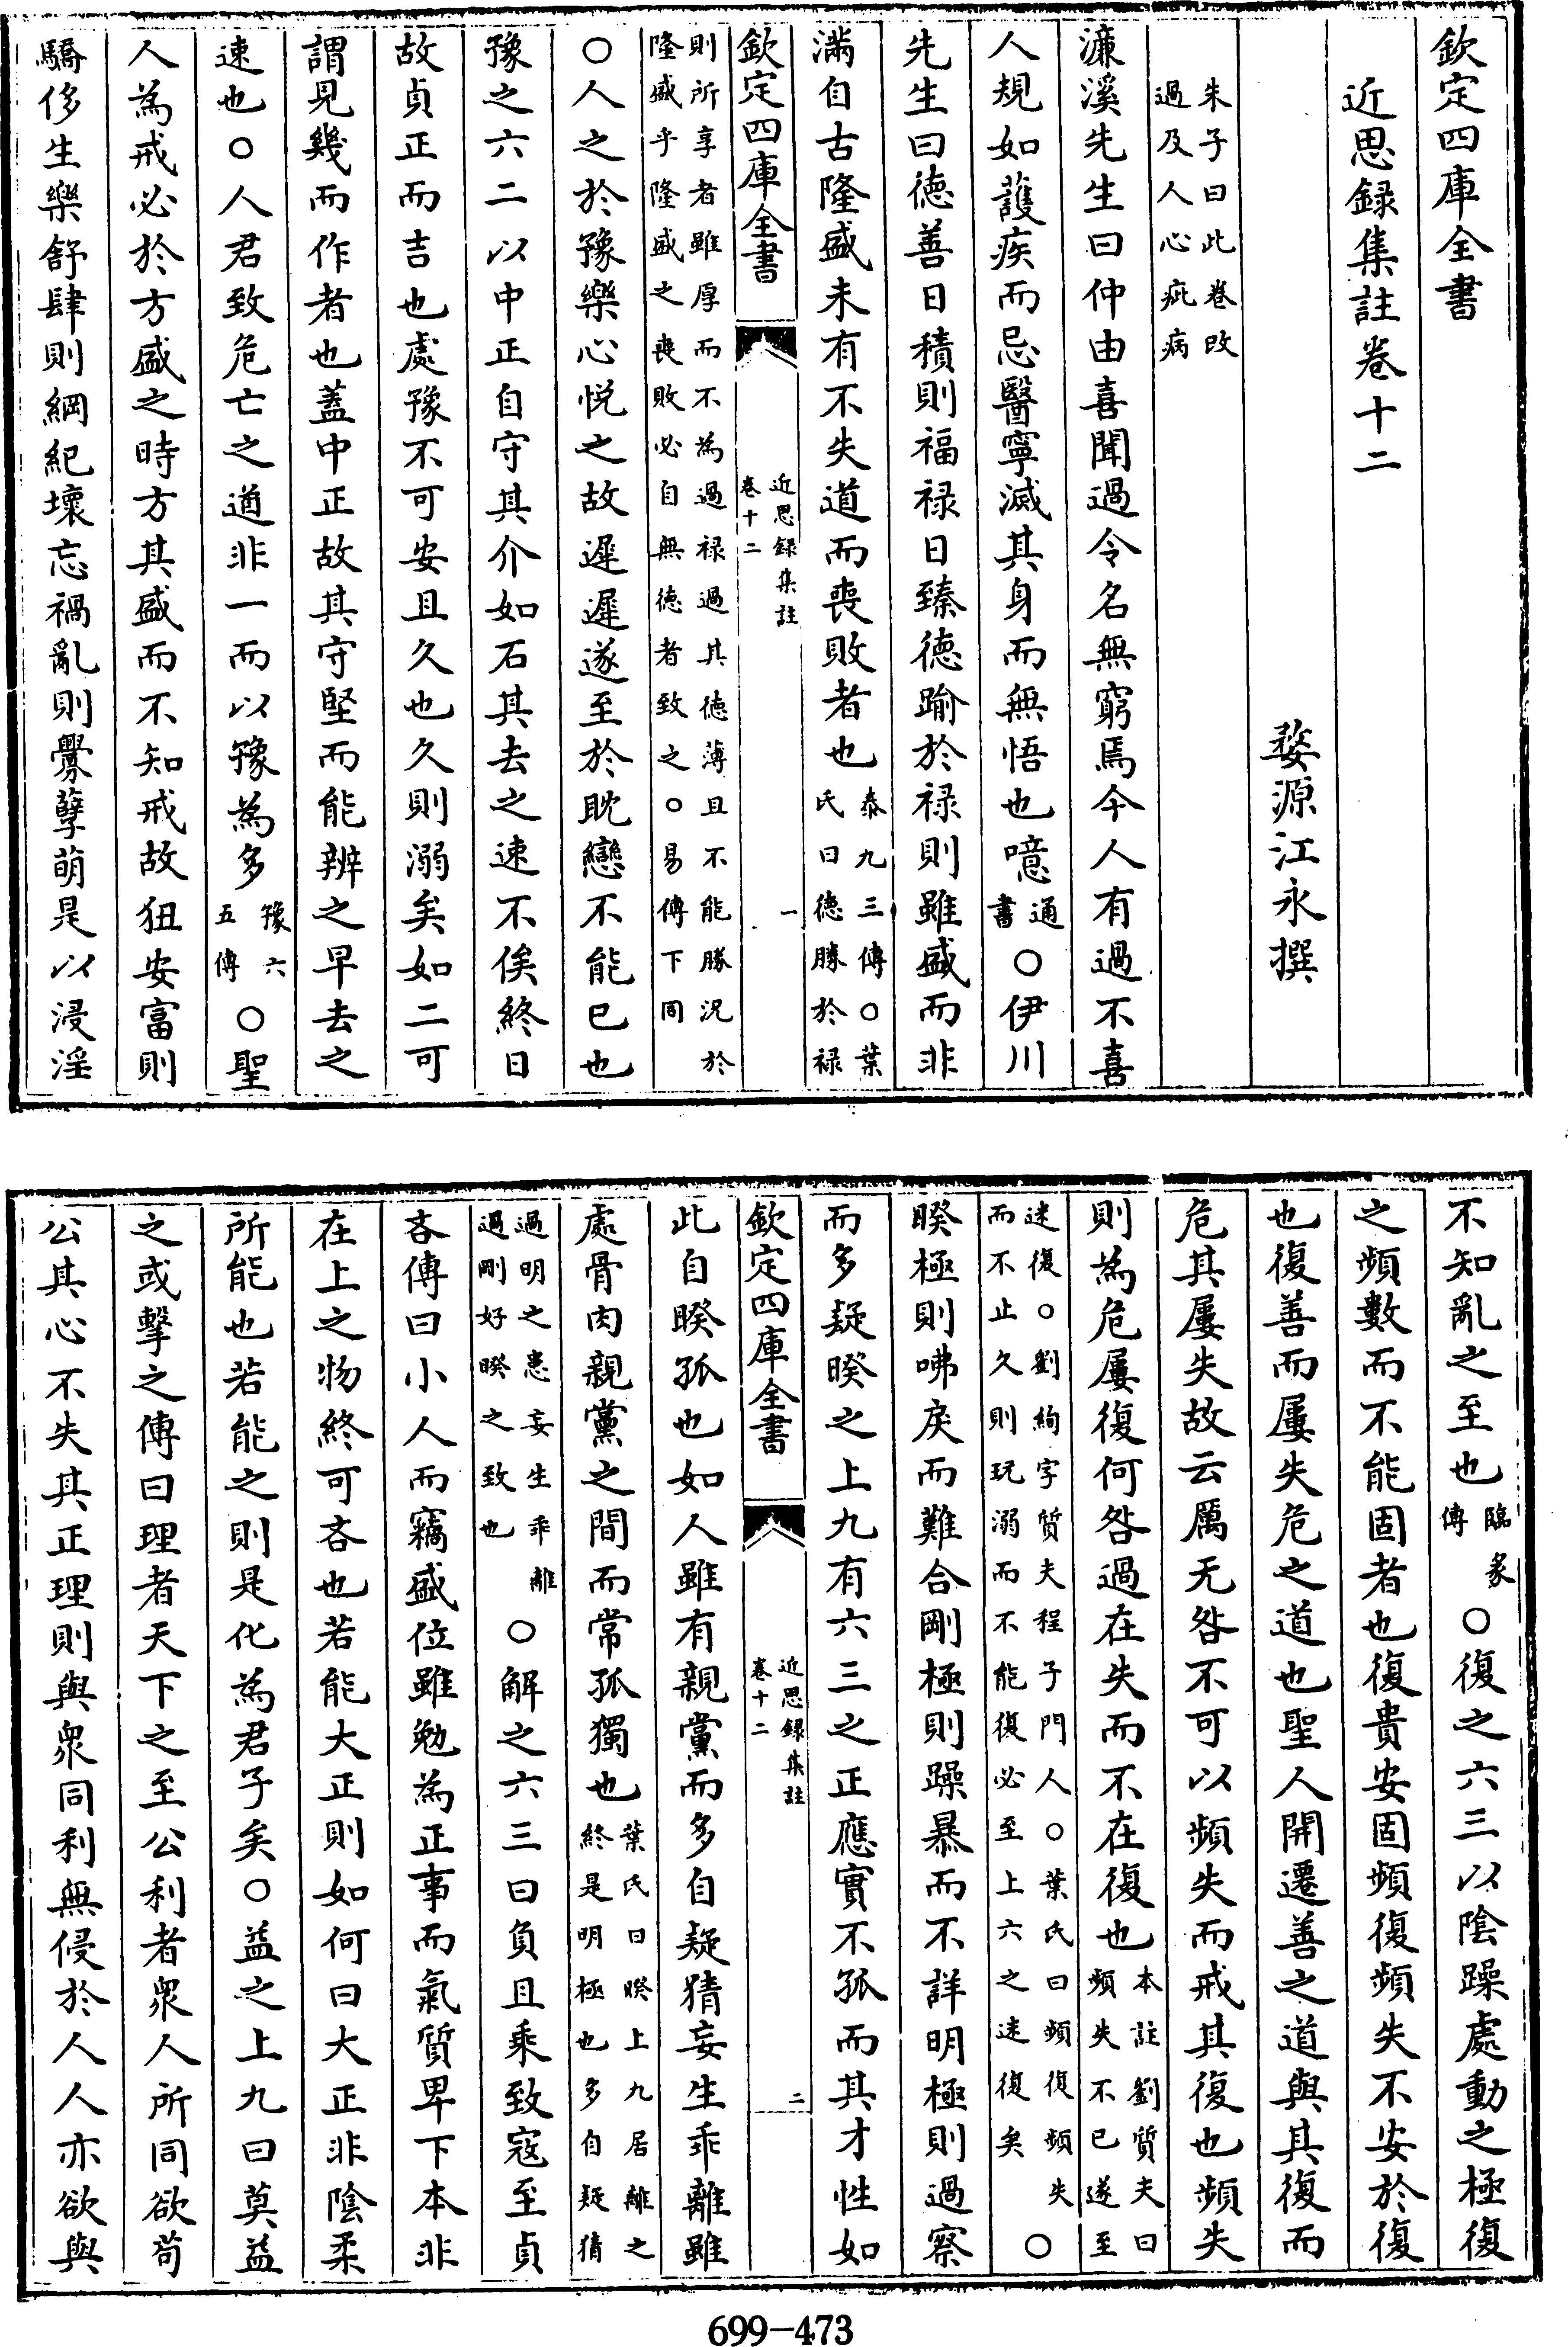 欽定四庫全書
近思録集註卷十二
婺源江永撰
朱子曰此卷改
過及人心疵病
濂溪先生曰仲由喜聞過令名無窮焉今人有過不喜
人規如護疾而忌醫寧滅其身而無悟也噫通書○伊川
先生曰徳善日積則福禄日臻徳踰於禄則雖盛而非
滿自古隆盛未有不失道而喪敗者也泰九三傳○葉氏曰徳勝於禄
欽定四庫全書
近思録集註
卷十二
一
則所享者雖厚而不為過禄過其徳薄且不能勝況於
隆盛乎隆盛之喪敗必自無徳者致之○易傳下同
○人之於豫樂心悦之故遲遲遂至於耽戀不能已也
豫之六二以中正自守其介如石其去之速不俟終日
故貞正而吉也處豫不可安且久也久則溺矣如二可
謂見幾而作者也蓋中正故其守堅而能辨之早去之
速也○人君致危亡之道非一而以豫為多豫六五傳○聖
人為戒必於方盛之時方其盛而不知戒故狃安富則
驕侈生樂舒肆則綱紀壞忘禍亂則釁孽萌是以浸淫
不知亂之至也臨彖傳○復之六三以陰躁處動之極復
之頻數而不能固者也復貴安固頻復頻失不安於復
也復善而屢失危之道也聖人開遷善之道與其復而
危其屢失故云厲无咎不可以頻失而戒其復也頻失
則為危屢復何咎過在失而不在復也本註劉質夫曰頻失不已遂至
迷復○劉絢字質夫程子門人○葉氏曰頻復頻失
而不止久則玩溺而不能復必至上六之迷復矣
○
睽極則咈戾而難合剛極則躁暴而不詳明極則過察
而多疑睽之上九有六三之正應實不孤而其才性如
欽定四庫全書
近思録集註
卷十二
二
此自睽孤也如人雖有親黨而多自疑猜妄生乖離雖
處骨肉親黨之間而常孤獨也葉氏曰睽上九居離之終是明極也多自疑猜
過明之患妄生乖離
過剛好睽之致也
○解之六三曰負且乘致寇至貞
吝傳曰小人而竊盛位雖勉為正事而氣質卑下本非
在上之物終可吝也若能大正則如何曰大正非陰柔
所能也若能之則是化為君子矣○益之上九曰莫益
之或擊之傳曰理者天下之至公利者衆人所同欲茍
公其心不失其正理則與衆同利無侵於人人亦欲與
699-473